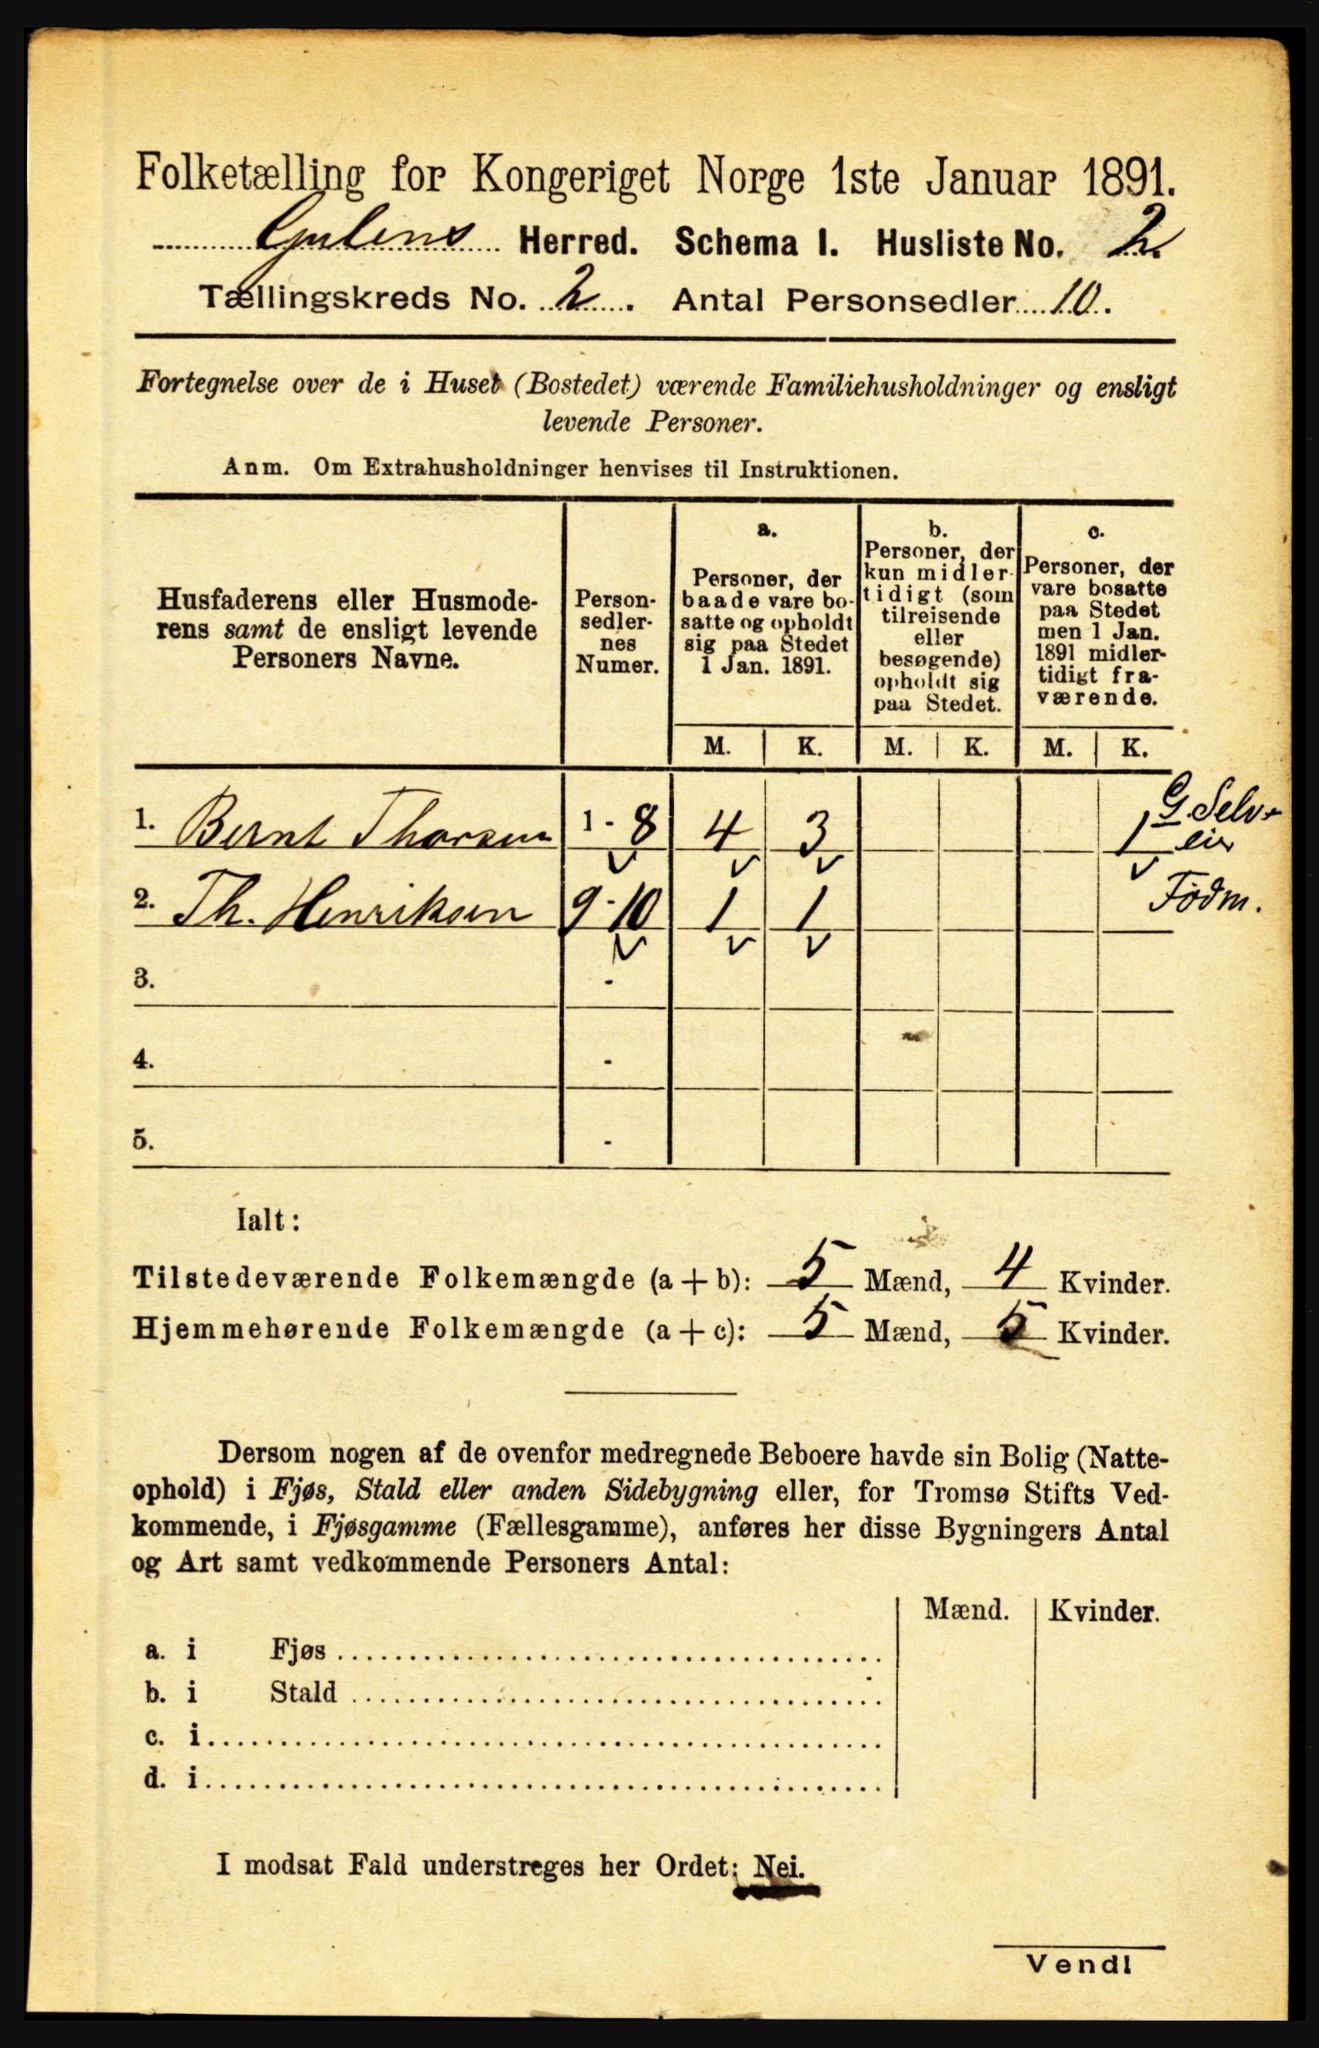 Folketælling for Kongeriget Norge 1ste Januar 1891.
Gulens Herred. Schema I. Husliste No. 2.
Tællingskreds No. 2. Antal Personsedler 10.
Fortegnelse over de i Huset (Bostedet) værende Familiehusholdninger og ensligt
levende Personer.
Anm. Om Extrahusholdninger henvises til Instruktionen.
Husfaderens eller Husmode-
rens samt de ensligt levende
Personers Navne.
Person-
sedler-
nes
Numer.
a.
Personer, der
baade vare bo-
satte og opholdt
sig paa Stedet
1 Jan. 1891.
b.
Personer, der
kun midler-
tidigt (som
tilreisende
eller
besøgende)
opholdt sig
paa Stedet.
c.
Personer, der
vare bosatte
paa Stedet
men 1 Jan.
1891 midler-
tidigt fra-
værende.
M. K. M. K. M. K.
1. Bernt Thorsen 1 - 8 4 3 1 G Selv-
eier
2. Th. Henriksen 9 - 10 1 1 Fodm.
3. -
4. -
5. -
Ialt:
Tilstedeværende Folkemængde (a + b): 5 Mænd, 4 Kvinder.
Hjemmehørende Folkemængde (a + c): 5 Mænd, 5 Kvinder.
Dersom nogen af de ovenfor medregnede Beboere havde sin Bolig (Natte-
ophold) i Fjøs, Stald eller anden Sidebygning eller, for Tromsø Stifts Ved-
kommende, i Fjøsgamme (Fællesgamme), anføres her disse Bygningers Antal
og Art samt vedkommende Personers Antal:
Mænd. Kvinder.
a. i Fjøs
b. i Stald
c. i
d. i
I modsat Fald understreges her Ordet: Nei.
Vend!